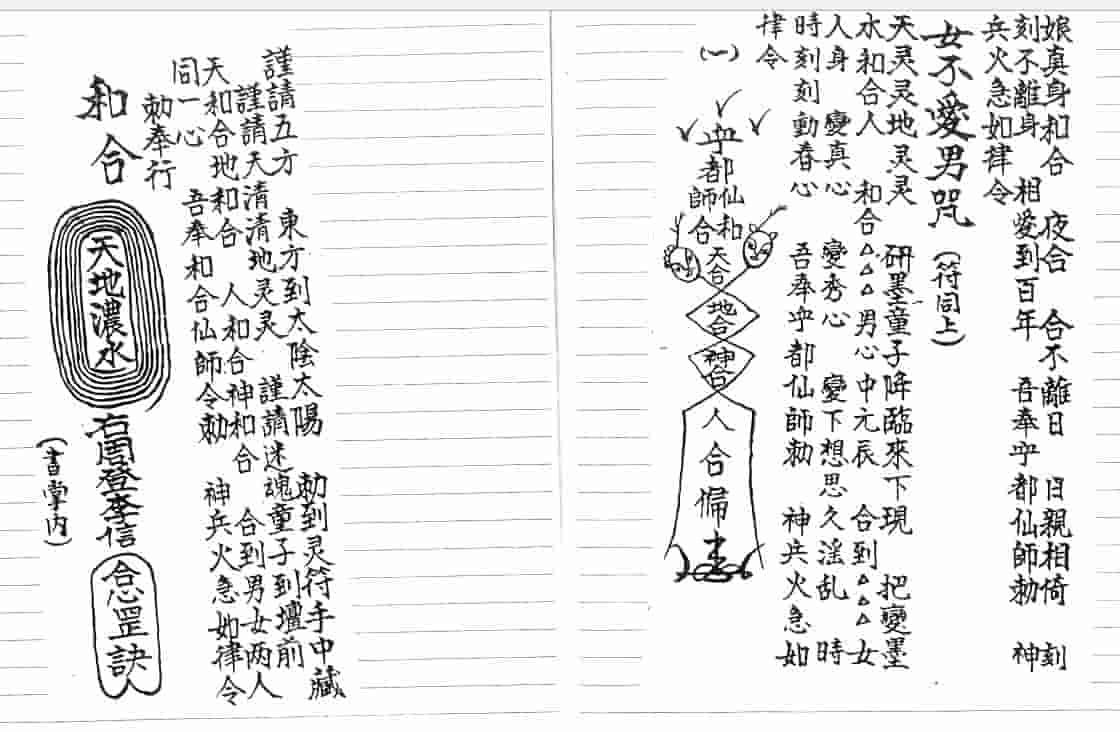 娘真身和合 夜合 合不離日 日親相倚 刻
刻不離身 相愛到百年 吾奉乎都仙師勅 神
兵火急如律令
女不愛男咒 (符同上)
天灵灵地灵灵 研墨童子降臨來下現 把變墨
水和合人 和合△△△男心中元辰 合到△△△女
人身 變真心 變秀心 變下想思久淫乱 時
時刻刻動春心 吾奉乎都仙師勅 神兵火急如
律令
(一)
乎都仙師
和合
天合
地合
神合
人合
謹請五方 東方到太陰太陽 勅到灵符手中藏
謹請天清清地灵灵 謹請迷魂童子到壇前
天和合地和合 人和合神和合 合到男女两人
同一心 吾奉和合仙師令勅 神兵火急如律令
勅奉行
和合
天地濃水
右周登李信
罡訣
(書掌内)